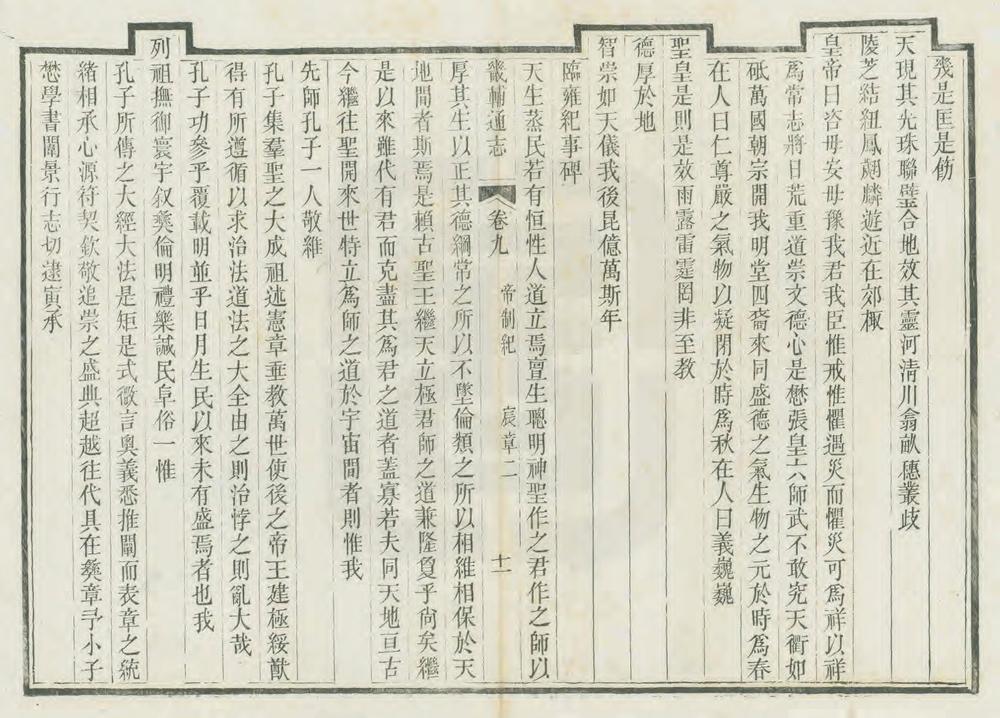 幾是匡是飭
天現其光珠聯璧合地效其靈河清川翕畝穗叢歧
陵芝結紐鳳翽麟遊近在郊棷
皇帝曰咨毋安毋豫我君我臣惟戒惟懼遇災而懼災可為祥以祥
為常志將日荒重道崇文德心是懋張皇六師武不敢究天衢如
砥萬國朝宗開我明堂四裔來同盛德之氣生物之元於時為春
在人曰仁尊嚴之氣物以凝閉於時為秋在人曰義巍巍
聖皇是則是效雨露雷霆罔非至教
德厚於地
智崇如天儀我後昆億萬斯年
臨雍紀事碑
天生蒸民若有恒性人道立焉亶生聰明神聖作之君作之師以
畿輔通志 卷九 帝制紀 宸章二 十一
厚其生以正其德綱常之所以不墜倫類之所以相維相保於天
地間者斯焉是賴古聖王繼天立極君師之道兼隆敻乎尚矣繼
是以來雖代有君而克盡其為君之道者蓋寡若夫同天地亘古
今繼往聖開來世特立為師之道於宇宙間者則惟我
先師孔子一人敬維
孔子集羣聖之大成祖述憲章垂教萬世使後之帝王建極綏猷
得有所遵循以求治法道法之大全由之則治悖之則亂大哉
孔子功參乎覆載明並乎日月生民以來未有盛焉者也我
列祖撫御寰宇叙彝倫明禮樂諴民阜俗一惟
孔子所傳之大經大法是矩是式微言奥義悉推闡而表章之統
緒相承心源符契欽敬追崇之盛典超越往代具在彝章予小子
懋學書闈景行志切逮寅承